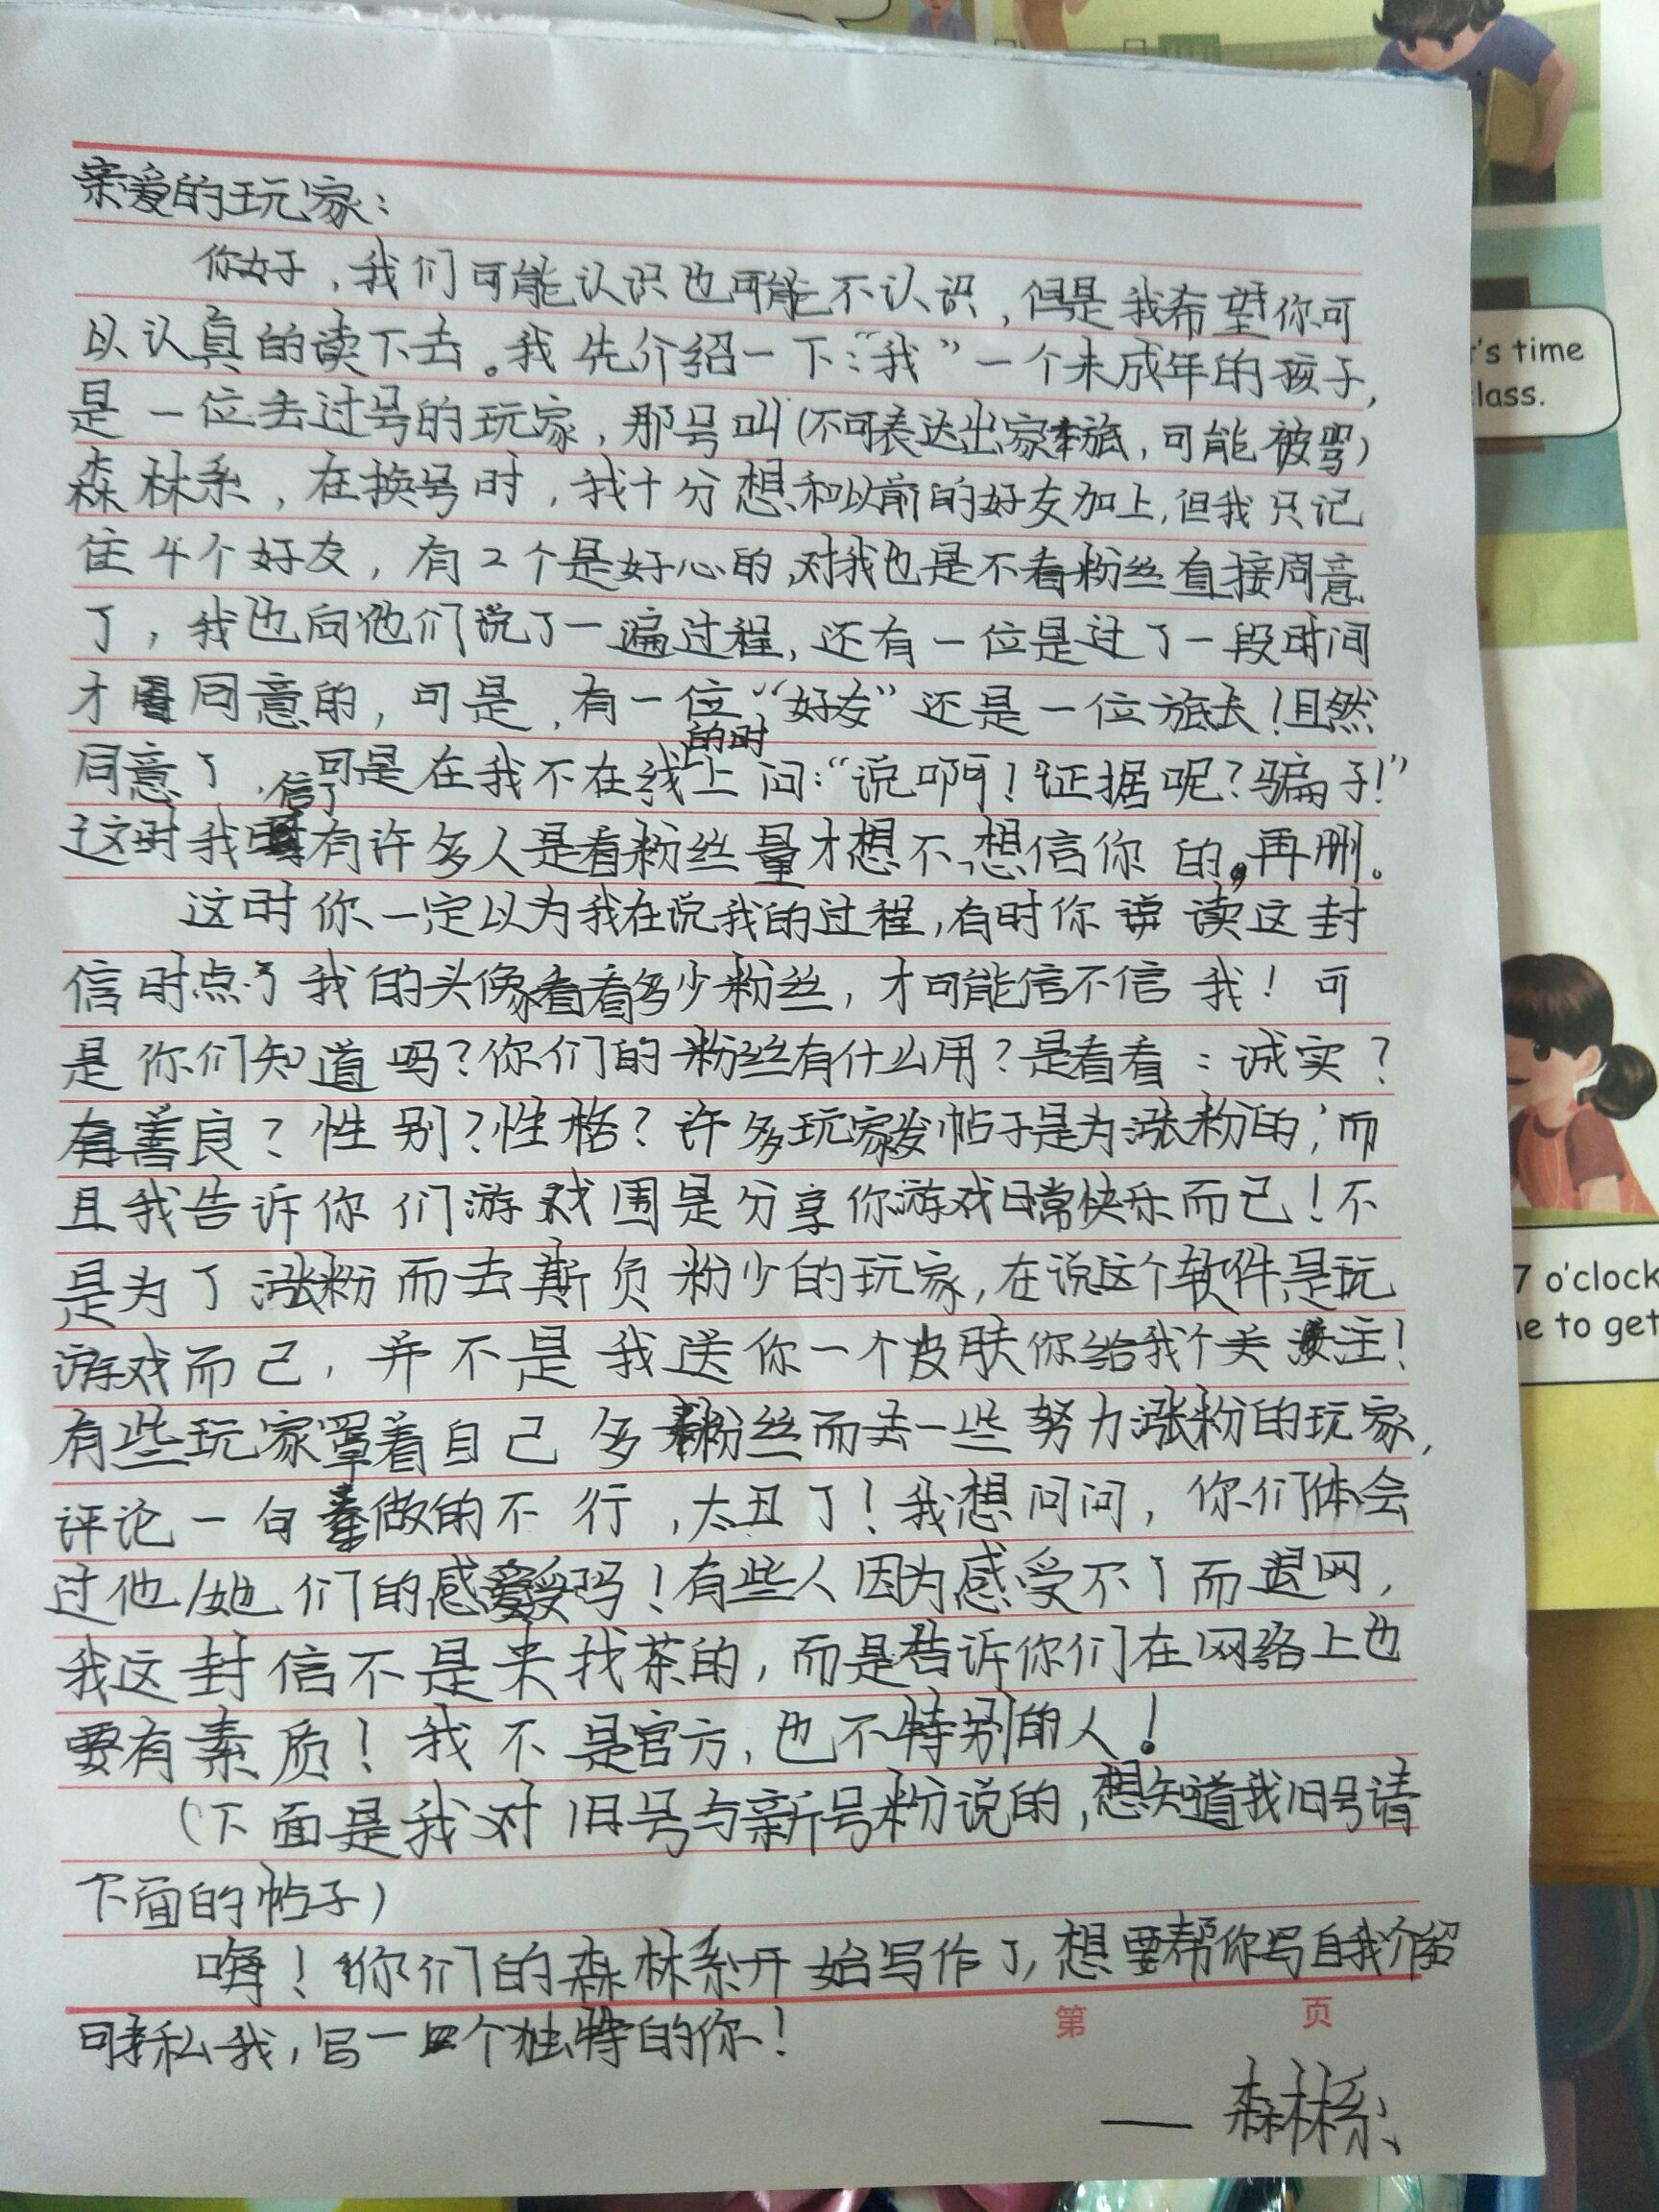 亲爱的玩家：
你好，我们可能认识也可能不认识，但是我希望你可
以认真的读下去。我先介绍一下：“我”一个未成年的孩子，
是一位丢过号的玩家，那号叫（不可表达出家族，可能被骂）
森林系，在换号时，我十分想和以前的好友加上，但我只记
住4个好友，有2个是好心的，对我也是不看粉丝直接同意
了，我也向他们说了一遍过程，还有一位是过了一段时间
才同意的，可是，有一位“好友”还是一位族长！且然
同意了，可是在我不在线上的时问：“说啊！证据呢？骗子！”
这时我信了有许多人是看粉丝量才想不想信你的，再删。
这时你一定以为我在说我的过程，有时你读这封
信时点了我的头像看看多少粉丝，才可能信不信我！可
是你们知道吗？你们的粉丝有什么用？是看看：诚实？
善良？性别？性格？许多玩家发帖子是为涨粉的，而
且我告诉你们游戏围是分享你游戏日常快乐而己！不
是为了涨粉而去斯负粉少的玩家，在说这个软件是玩
游戏而己，并不是我送你一个皮肤你给我个关注！
有些玩家罩着自己多粉丝而去一些努力涨粉的玩家，
评论一句做的不行，太丑了！我想问问，你们体会
过他/她们的感受吗！有些人因为感受不了而退网，
我这封信不是来找茶的，而是告诉你们在网络上也
要有素质！我不是官方，也不特别的人！
（下面是我对旧号与新号粉说的，想知道我旧号请
下面的帖子）
嗨！你们的森林系开始写作了，想要帮你写自我介绍
可私我，写一个独特的你！
第 页
—— 森林系
's time
lass.
7 o'clock
e to get